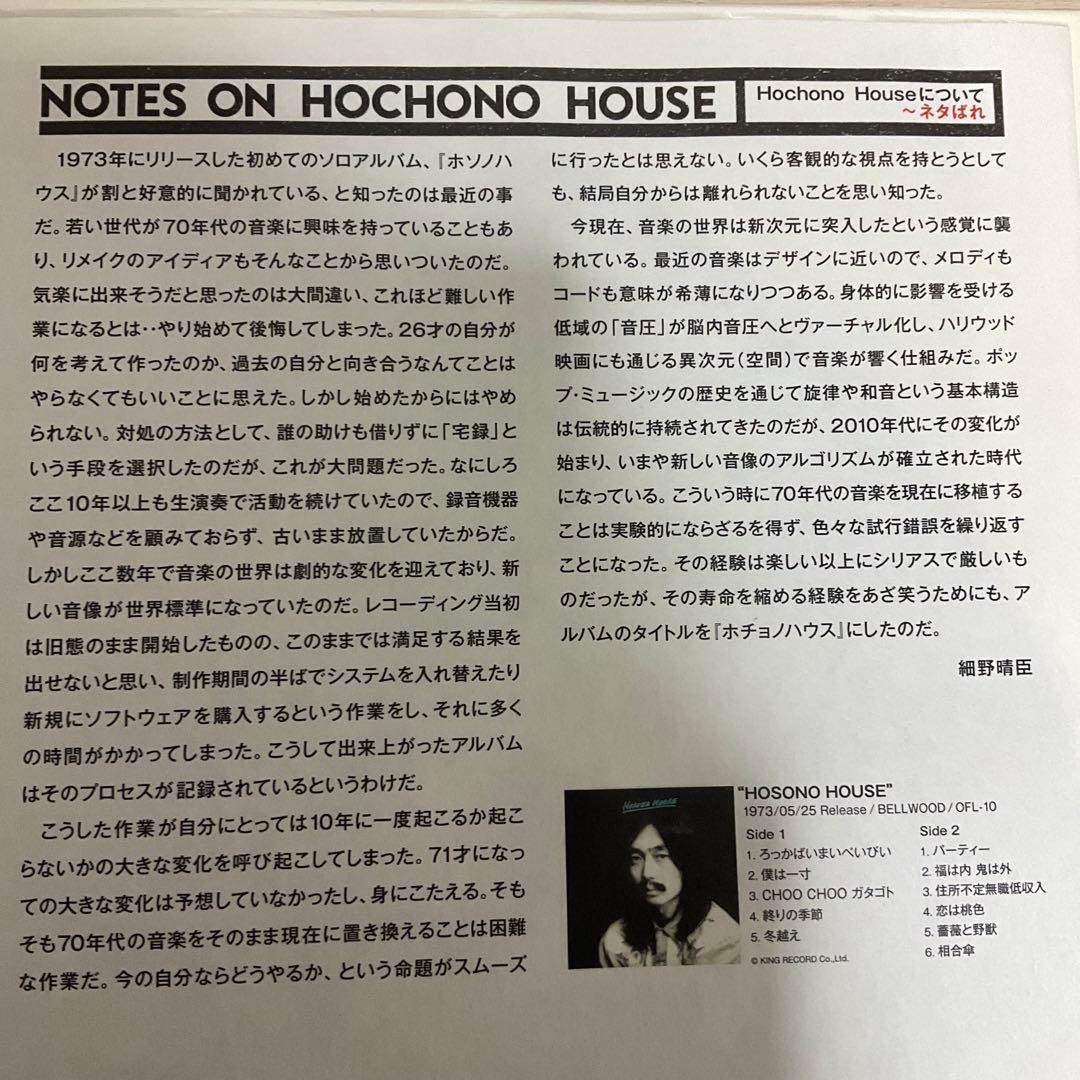 NOTES ON HOCHONO HOUSE
Hochono Houseについて
〜ネタばれ
1973年にリリースした初めてのソロアルバム、『ホソノハ
ウス』が割と好意的に聞かれている、と知ったのは最近の事
だ。若い世代が70年代の音楽に興味を持っていることもあ
り、リメイクのアイディアもそんなことから思いついたのだ。
気楽に出来そうだと思ったのは大間違い、これほど難しい作
業になるとは‥やり始めて後悔してしまった。26才の自分が
何を考えて作ったのか、過去の自分と向き合うなんてことは
やらなくてもいいことに思えた。しかし始めたからにはやめ
られない。対処の方法として、誰の助けも借りずに「宅録」と
いう手段を選択したのだが、これが大問題だった。なにしろ
ここ10年以上も生演奏で活動を続けていたので、録音機器
や音源などを顧みておらず、古いまま放置していたからだ。
しかしここ数年で音楽の世界は劇的な変化を迎えており、新
しい音像が世界標準になっていたのだ。レコーディング当初
は旧態のまま開始したものの、このままでは満足する結果を
出せないと思い、制作期間の半ばでシステムを入れ替えたり
新規にソフトウェアを購入するという作業をし、それに多く
の時間がかかってしまった。こうして出来上がったアルバム
はそのプロセスが記録されているというわけだ。
こうした作業が自分にとっては10年に一度起こるか起こ
らないかの大きな変化を呼び起こしてしまった。71才になっ
ての大きな変化は予想していなかったし、身にこたえる。そも
そも70年代の音楽をそのまま現在に置き換えることは困難
な作業だ。今の自分ならどうやるか、という命題がスムーズ
に行ったとは思えない。いくら客観的な視点を持とうとして
も、結局自分からは離れられないことを思い知った。
今現在、音楽の世界は新次元に突入したという感覚に襲
われている。最近の音楽はデザインに近いので、メロディも
コードも意味が希薄になりつつある。身体的に影響を受ける
低域の「音圧」が脳内音圧へとヴァーチャル化し、ハリウッド
映画にも通じる異次元(空間)で音楽が響く仕組みだ。ポッ
プ・ミュージックの歴史を通じて旋律や和音という基本構造
は伝統的に持続されてきたのだが、2010年代にその変化が
始まり、いまや新しい音像のアルゴリズムが確立された時代
になっている。こういう時に70年代の音楽を現在に移植する
ことは実験的にならざるを得ず、色々な試行錯誤を繰り返す
ことになった。その経験は楽しい以上にシリアスで厳しいも
のだったが、その寿命を縮める経験をあざ笑うためにも、ア
ルバムのタイトルを『ホチョノハウス』にしたのだ。
細野晴臣
HOSONO HOUSE
"HOSONO HOUSE"
1973/05/25 Release / BELLWOOD / OFL-10
Side 1
1. ろっかばいまいべいびい
2. 僕は一寸
3. CHOO CHOO ガタゴト
4. 終りの季節
5. 冬越え
© KING RECORD Co.,Ltd.
Side 2
1. パーティー
2. 福は内 鬼は外
3. 住所不定無職低収入
4. 恋は桃色
5. 薔薇と野獣
6. 相合傘